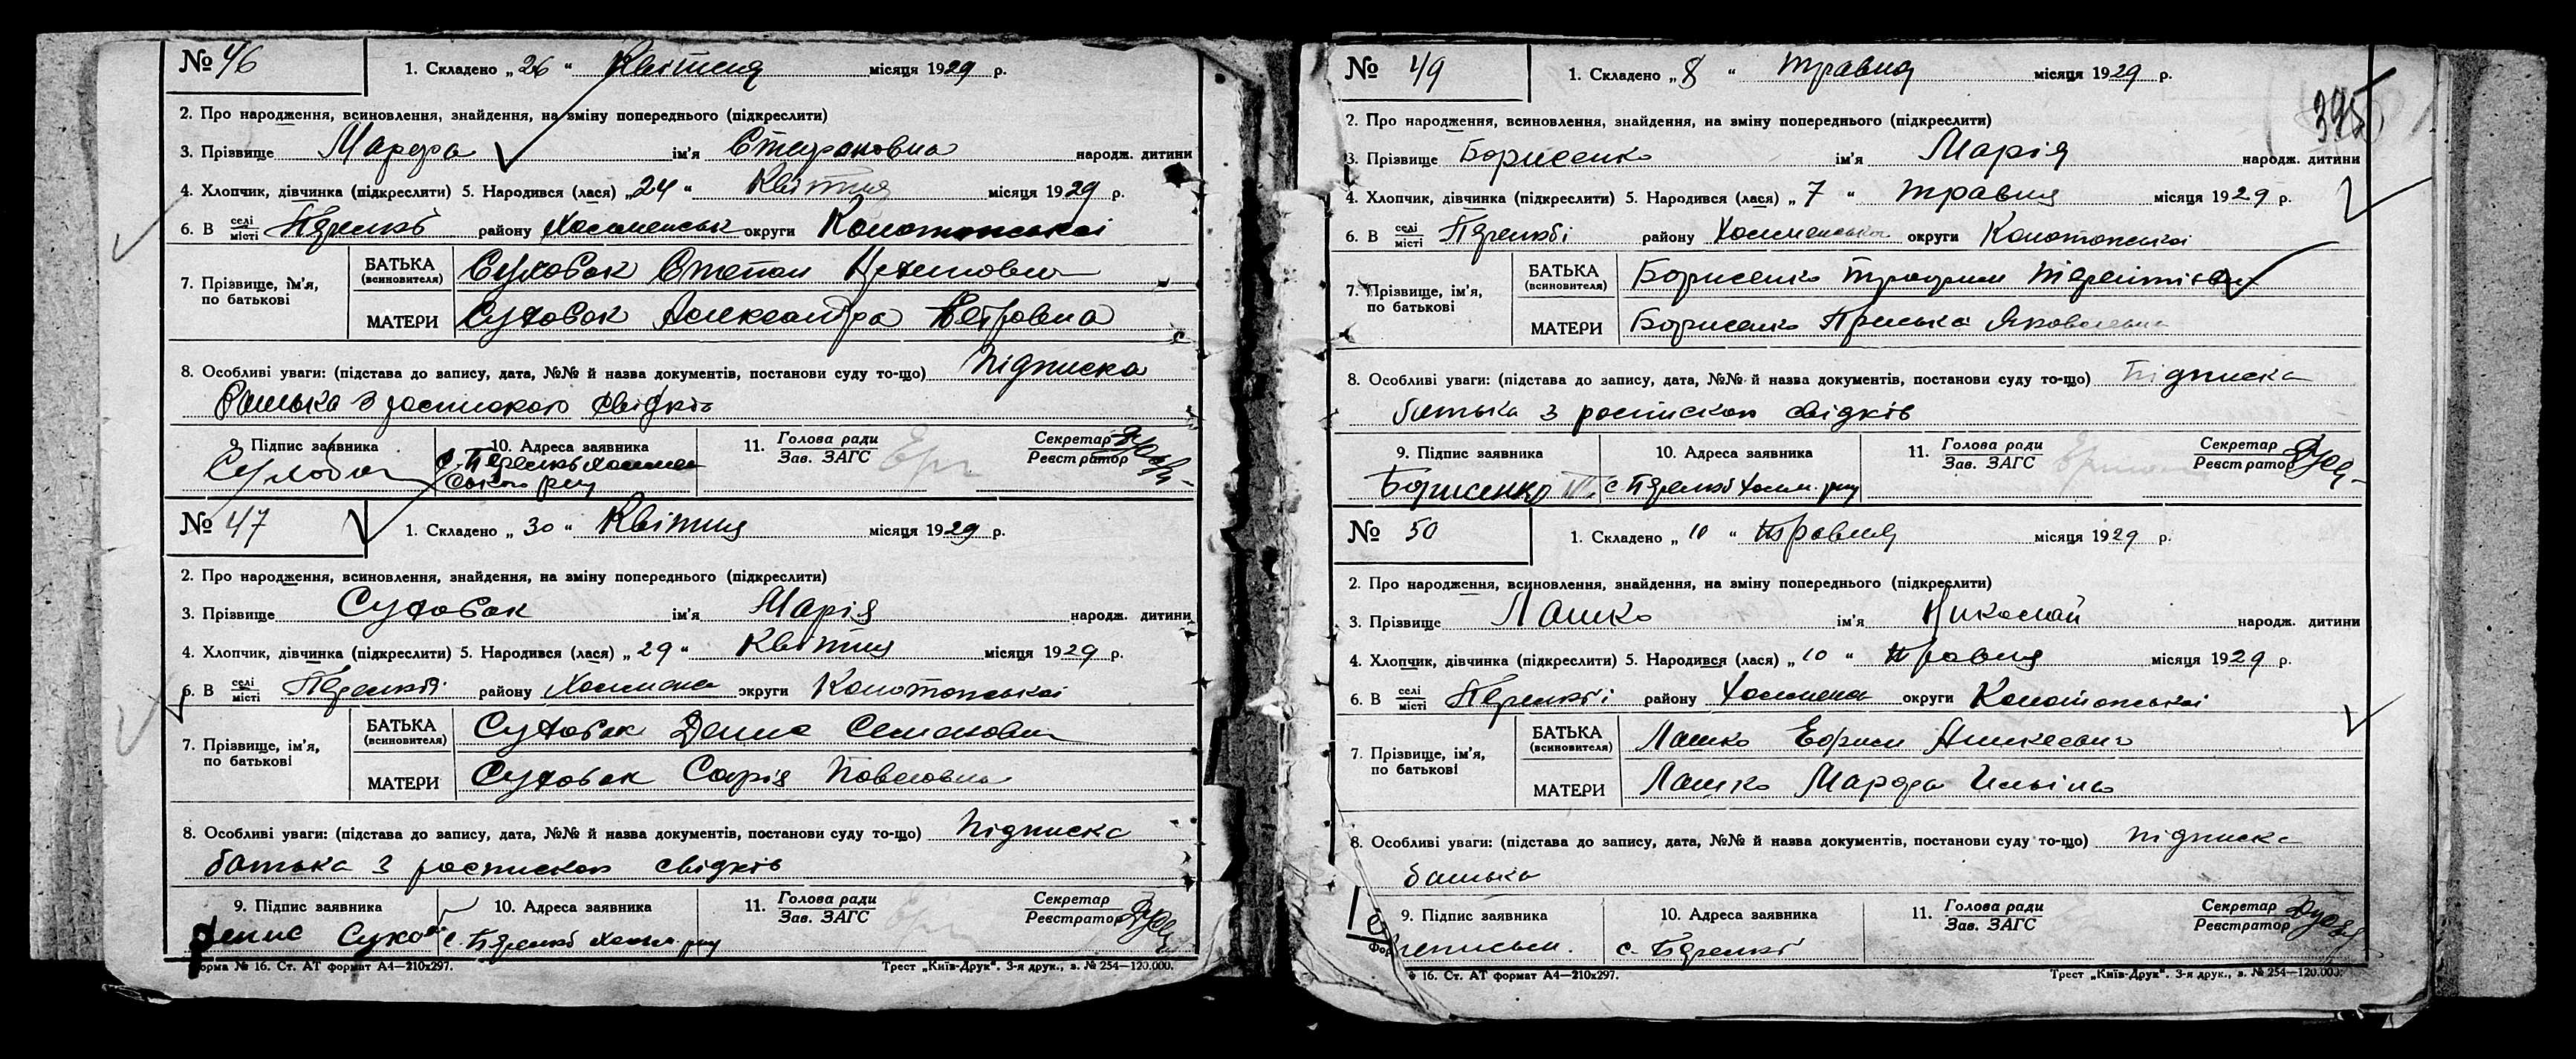 № 46
1. Складено „ 26 “ Квітня місяця 1929 р.
2. Про народження, всиновлення, знайдення, на зміну попереднього (підкреслити)
3. Прізвище Марфа ім'я Стефановна народж. дитини
4. Хлопчик, дівчинка (підкреслити) 5. Народився (лася) „ 24 “ Квітня місяця 1929 р.
6. В селі місті району округи Конотопської
7. Прізвище, ім'я, по батькові
БАТЬКА (всиновителя) Суховак Степан
МАТЕРИ Суховак Александра Петровна
8. Особливі уваги: (підстава до запису, дата, №№ й назва документів, постанови суду то-що) Підписка
батька з роспискою свідків
9. Підпис заявника 10. Адреса заявника 11. Голова ради Зав. ЗАГС Секретар Реєстратор
№ 47
1. Складено „ 30 “ Квітня місяця 1929 р.
2. Про народження, всиновлення, знайдення, на зміну попереднього (підкреслити)
3. Прізвище Суховак ім'я Марія народж. дитини
4. Хлопчик, дівчинка (підкреслити) 5. Народився (лася) „ 29 “ Квітня місяця 1929 р.
6. В селі місті району округи Конотопської
7. Прізвище, ім'я, по батькові
БАТЬКА (всиновителя) Суховак Денис Семенович
МАТЕРИ Суховак Софія Павловна
8. Особливі уваги: (підстава до запису, дата, №№ й назва документів, постанови суду то-що) Підписка
батька з роспискою свідків
9. Підпис заявника 10. Адреса заявника 11. Голова ради Зав. ЗАГС Секретар Реєстратор
Денис
Форма № 16. Ст. АТ формат А4—210х297. Трест „Київ-Друк“. 3-я друк., з. № 254—120.000.
395
№ 49
1. Складено „ 8 “ травня місяця 1929 р.
2. Про народження, всиновлення, знайдення, на зміну попереднього (підкреслити)
3. Прізвище Борисенко ім'я Марія народж. дитини
4. Хлопчик, дівчинка (підкреслити) 5. Народився (лася) „ 7 “ травня місяця 1929 р.
6. В селі місті району округи Конотопської
7. Прізвище, ім'я, по батькові
БАТЬКА (всиновителя) Борисенко Трофим
МАТЕРИ Борисенко Приська Яковлевна
8. Особливі уваги: (підстава до запису, дата, №№ й назва документів, постанови суду то-що) Підписка
батька з роспискою свідків
9. Підпис заявника 10. Адреса заявника 11. Голова ради Зав. ЗАГС Секретар Реєстратор
Борисенко
№ 50
1. Складено „ 10 “ травня місяця 1929 р.
2. Про народження, всиновлення, знайдення, на зміну попереднього (підкреслити)
3. Прізвище Лашко ім'я Николай народж. дитини
4. Хлопчик, дівчинка (підкреслити) 5. Народився (лася) „ 10 “ травня місяця 1929 р.
6. В селі місті району округи Конотопської
7. Прізвище, ім'я, по батькові
БАТЬКА (всиновителя) Лашко
МАТЕРИ Лашко Марфа
8. Особливі уваги: (підстава до запису, дата, №№ й назва документів, постанови суду то-що) підписка
батька
9. Підпис заявника 10. Адреса заявника 11. Голова ради Зав. ЗАГС Секретар Реєстратор
16. Ст. АТ формат А4—210х297. Трест „Київ-Друк“. 3-я друк., з. № 254—120.000.